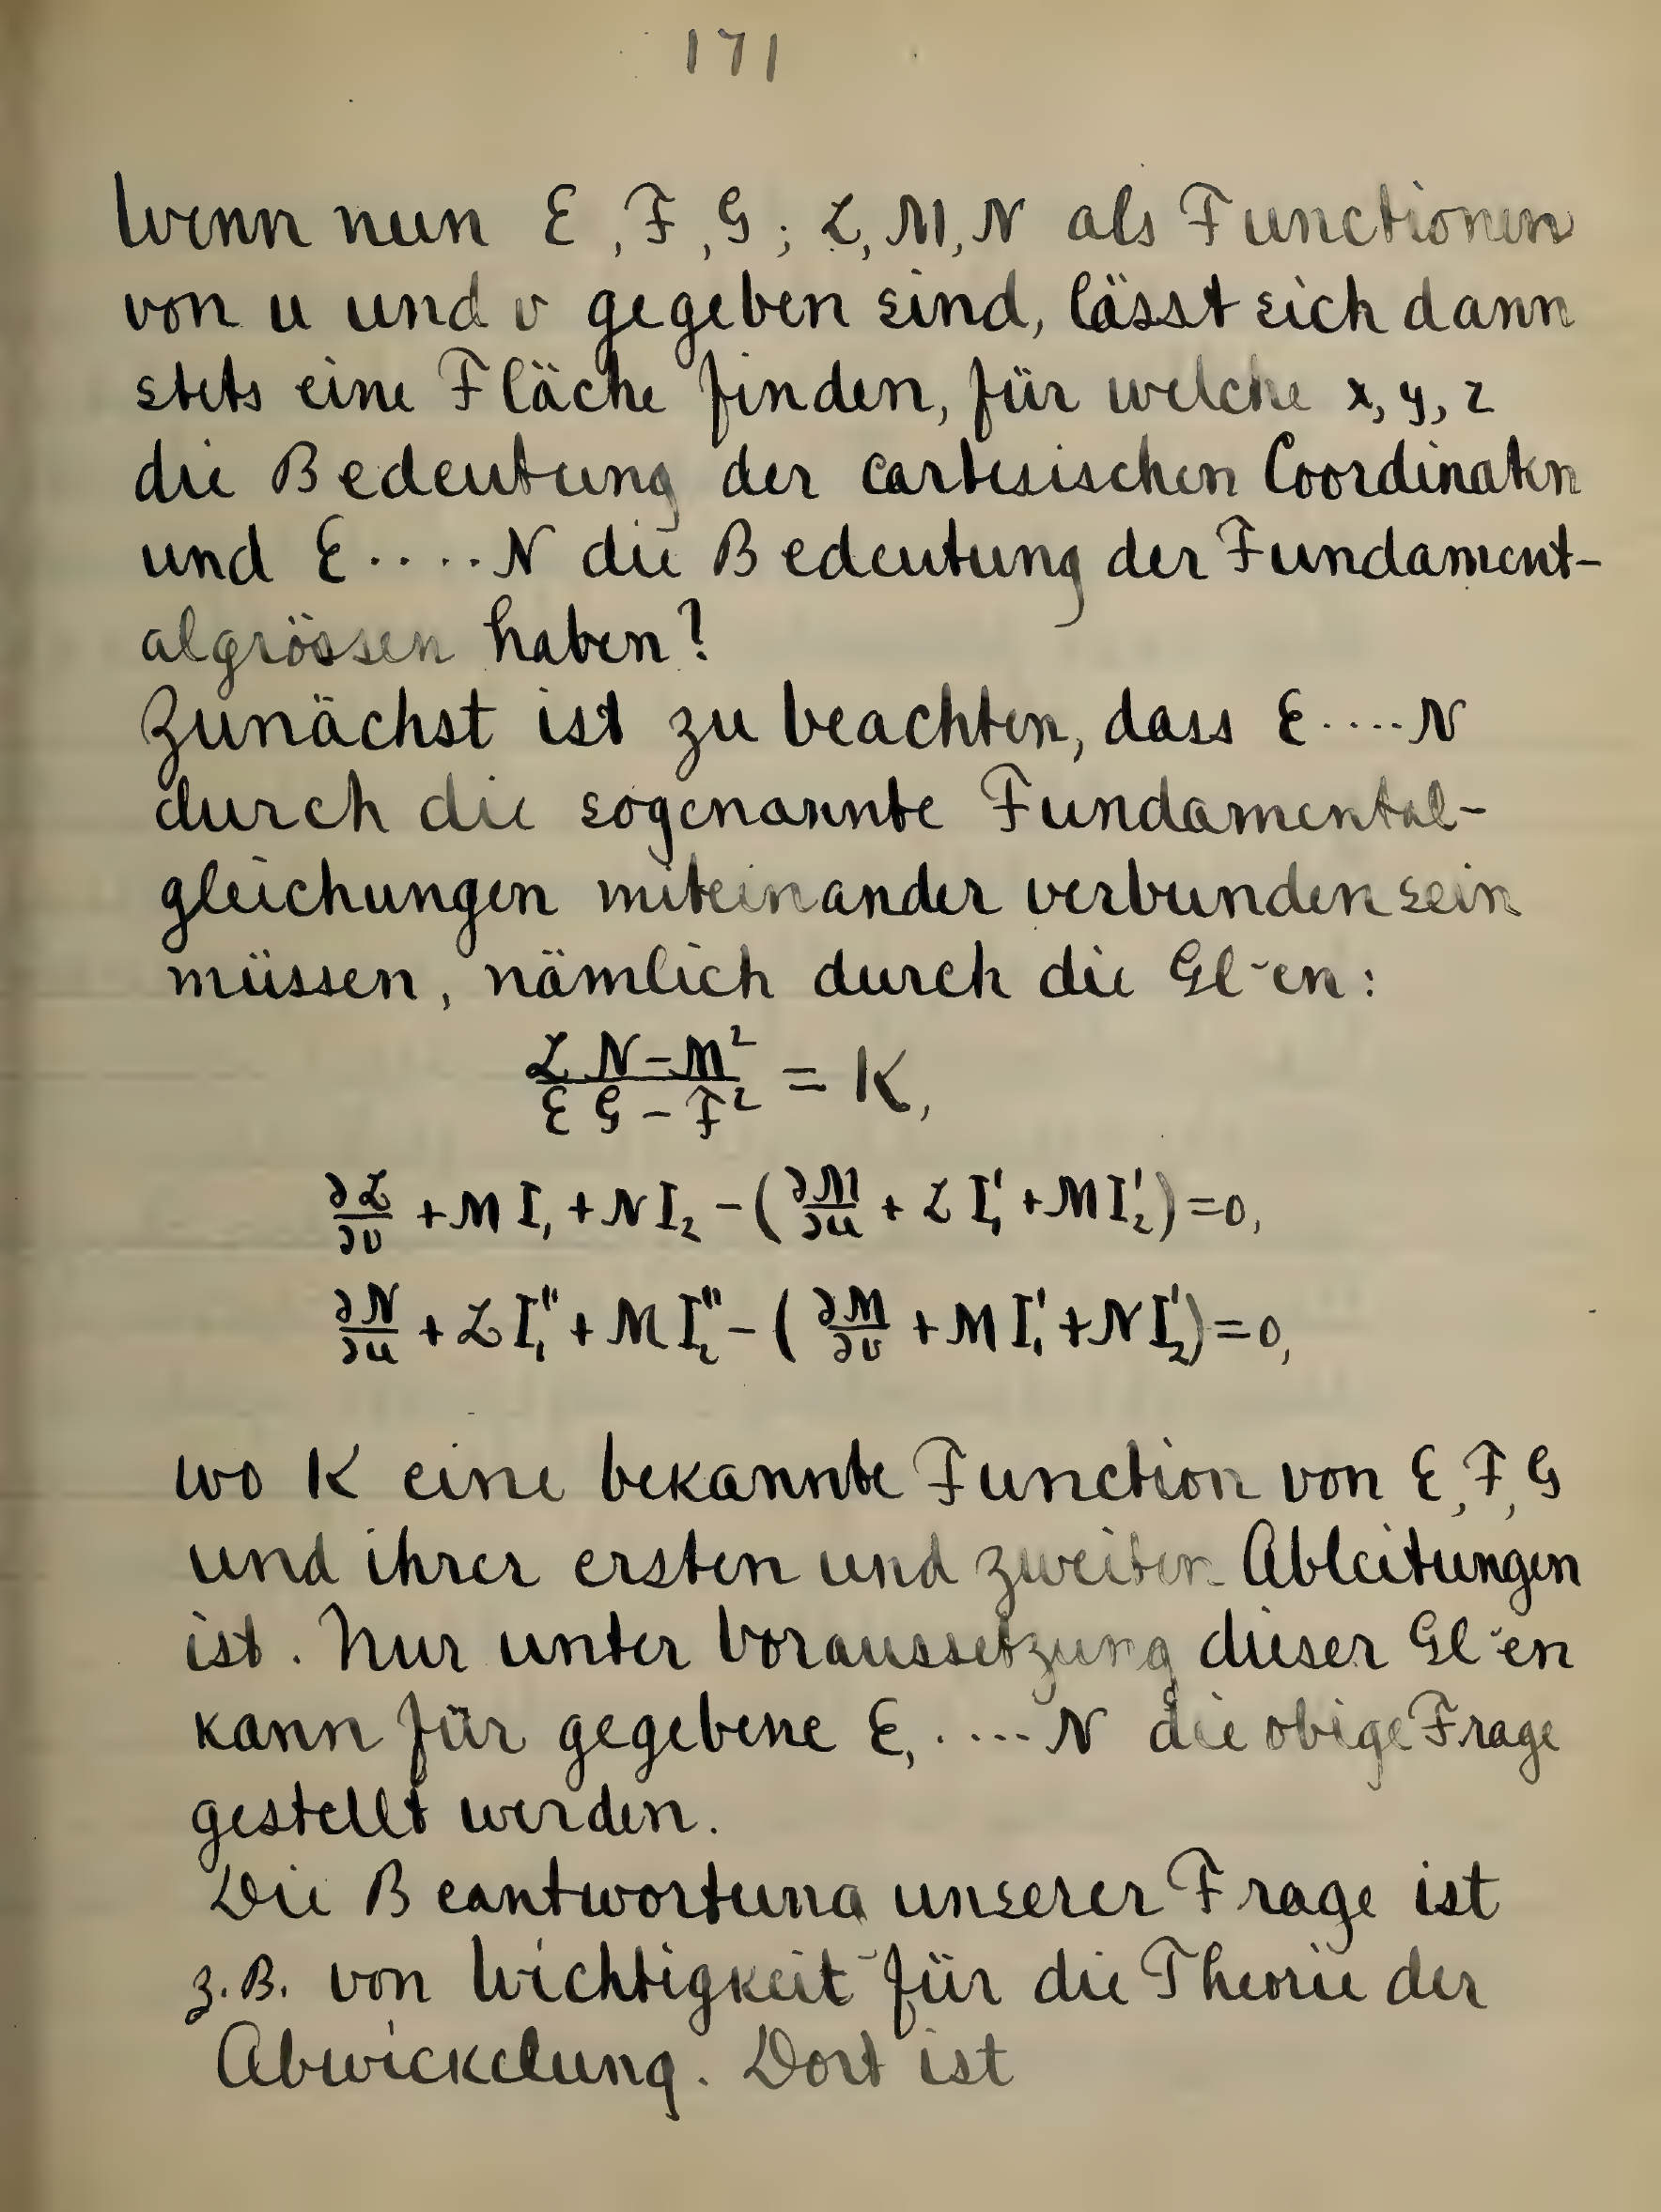 171
Wenn nun E, F, G; L, M, N als Functionen
von u und v gegeben sind, lässt sich dann
stets eine Fläche finden, für welche x, y, z
die Bedeutung der cartesischen Coordinaten
und E.....N die Bedeutung der Fundament-
algrössen haben?
Zunächst ist zu beachten, dass E....N
durch die sogenannte Fundamental-
gleichungen miteinander verbunden sein
müssen, nämlich durch die Gl-en:
\frac{LN-M^2}{EG-F^2} = K,
\frac{∂L}{∂v} + M I_1 + N I_2 - (\frac{∂M}{∂u} + L I_1' + M I_2') = 0,
\frac{∂N}{∂u} + L I_1'' + M I_2'' - (\frac{∂M}{∂v} + M I_1' + N I_2') = 0,
wo K eine bekannte Function von E, F, G
und ihrer ersten und zweiten Ableitungen
ist. Nur unter Voraussetzung dieser Gl-en
kann für gegebene E,....N die obige Frage
gestellt werden.
Die Beantwortung unserer Frage ist
z.B. von Wichtigkeit für die Theorie der
Abwickelung. Dort ist